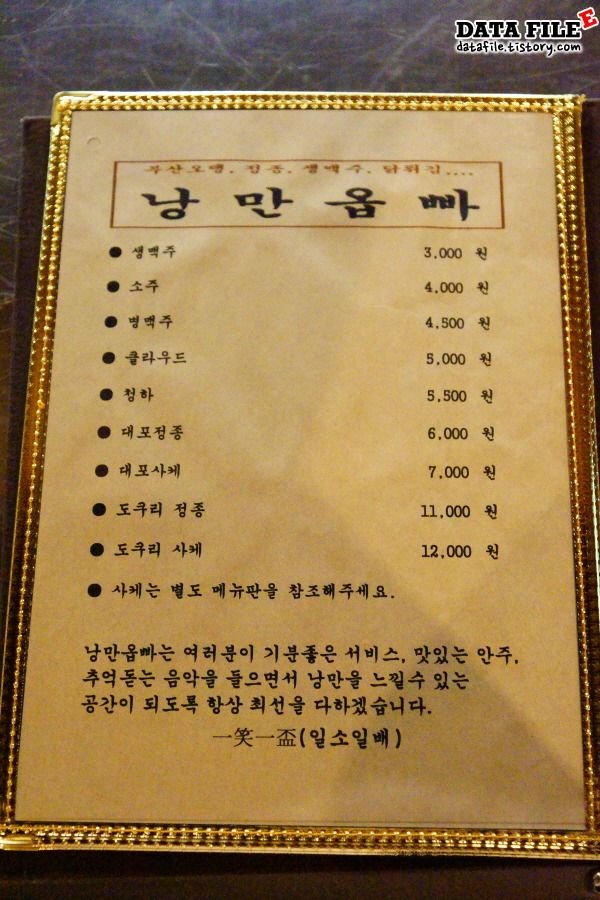 DATA FILE E
datafile.tistory.com
부산오뎅, 정종, 생맥주, 닭튀김....
낭만옵빠
● 생맥주 3,000 원
● 소주 4,000 원
● 병맥주 4,500 원
● 클라우드 5,000 원
● 청하 5,500 원
● 대포정종 6,000 원
● 대포사케 7,000 원
● 도쿠리 정종 11,000 원
● 도쿠리 사케 12,000 원
● 사케는 별도 메뉴판을 참조해주세요.
낭만옵빠는 여러분이 기분좋은 서비스, 맛있는 안주,
추억돋는 음악을 들으면서 낭만을 느낄수 있는
공간이 되도록 항상 최선을 다하겠습니다.
一笑一盃(일소일배)